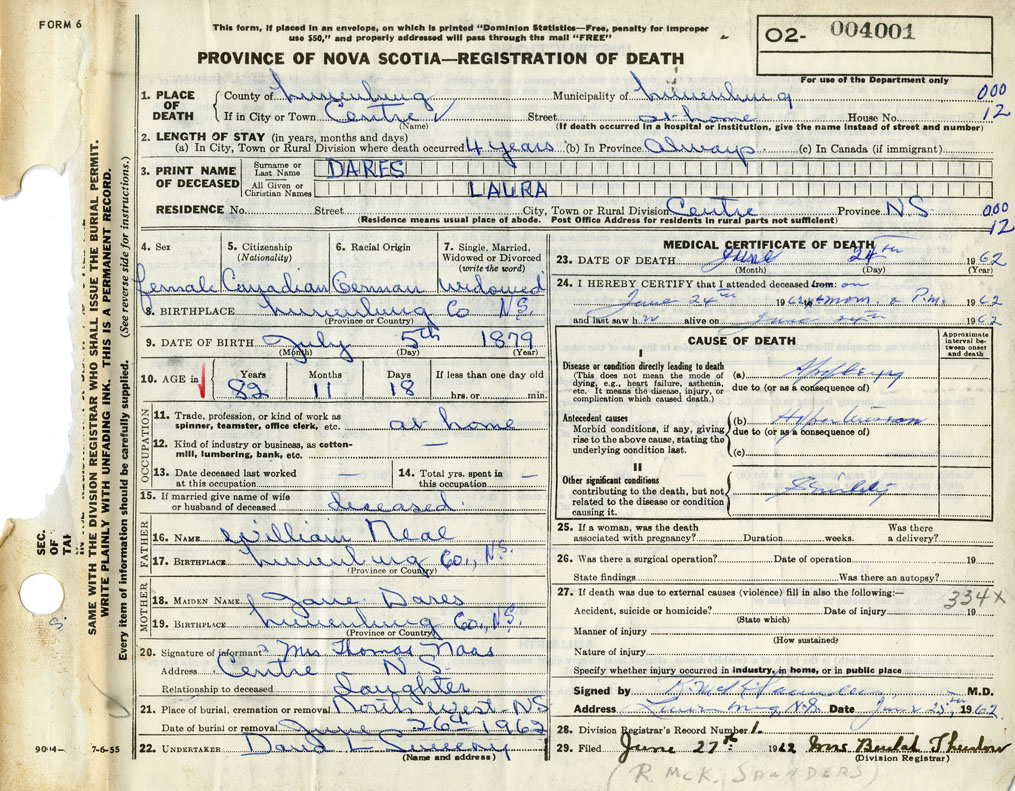 FORM 6
This form, if placed in an envelope, on which is printed "Dominion Statistics—Free, penalty for improper
use $50," and properly addressed will pass through the mail "FREE"
O2- 004001
For use of the Department only
PROVINCE OF NOVA SCOTIA—REGISTRATION OF DEATH
1. PLACE OF DEATH
County of Lunenburg Municipality of Lunenburg 000
If in City or Town Centre Street at home House No. 12
(Name) (If death occurred in a hospital or institution, give the name instead of street and number)
2. LENGTH OF STAY (in years, months and days)
(a) In City, Town or Rural Division where death occurred 4 years (b) In Province Always (c) In Canada (if immigrant)
3. PRINT NAME OF DECEASED
Surname or Last Name DARES
All Given or Christian Names LAURA
RESIDENCE No. Street City, Town or Rural Division Centre Province N.S 000
(Residence means usual place of abode. Post Office Address for residents in rural parts not sufficient) 12
4. Sex 5. Citizenship (Nationality) 6. Racial Origin 7. Single, Married, Widowed or Divorced (write the word)
female Canadian German Widowed
8. BIRTHPLACE Lunenburg Co N.S.
(Province or Country)
9. DATE OF BIRTH July 5th 1879
(Month) (Day) (Year)
10. AGE in Years Months Days If less than one day old
82 11 18 hrs. or min.
OCCUPATION
11. Trade, profession, or kind of work as
spinner, teamster, office clerk, etc. at home
12. Kind of industry or business, as cotton-
mill, lumbering, bank, etc. —
13. Date deceased last worked
at this occupation —
14. Total yrs. spent in
this occupation —
15. If married give name of wife
or husband of deceased deceased
FATHER
16. NAME William Neae
17. BIRTHPLACE Lunenburg Co., N.S.
(Province or Country)
MOTHER
18. MAIDEN NAME Jane Dares
19. BIRTHPLACE Lunenburg Co., N.S.
(Province or Country)
20. Signature of informant Mrs Thomas Naas
Address Centre N.S.
Relationship to deceased Daughter
21. Place of burial, cremation or removal North West N.S
Date of burial or removal June 26th 1962
22. UNDERTAKER David L Sweeny
(Name and address)
MEDICAL CERTIFICATE OF DEATH
23. DATE OF DEATH June 24th 1962
(Month) (Day) (Year)
24. I HEREBY CERTIFY that I attended deceased from: on
June 24th 1962 P.M. 1962
and last saw h alive on June 24th 1962
CAUSE OF DEATH
Approximate interval between onset and death
I
Disease or condition directly leading to death
(This does not mean the mode of
dying, e.g., heart failure, asthenia,
etc. It means the disease, injury, or
complication which caused death.)
(a)
due to (or as a consequence of)
Antecedent causes
Morbid conditions, if any, giving
rise to the above cause, stating the
underlying condition last.
(b) Hypertension
due to (or as a consequence of)
(c)
II
Other significant conditions
contributing to the death, but not
related to the disease or condition
causing it.
Senility
25. If a woman, was the death
associated with pregnancy? Duration weeks. Was there a delivery?
26. Was there a surgical operation? Date of operation 19
State findings Was there an autopsy?
27. If death was due to external causes (violence) fill in also the following:— 334x
Accident, suicide or homicide? Date of injury 19
(State which)
Manner of injury
(How sustained)
Nature of injury
Specify whether injury occurred in industry, in home, or in public place
Signed by R. McK Saunders M.D.
Address Lunenburg, N.S. Date June 25th 1962.
28. Division Registrar's Record Number 1.
29. Filed June 27th 1962 Mrs Beulah
(Division Registrar)
(R. McK. SAUNDERS)
90M— 7-6-55
SAME WITH THE DIVISION REGISTRAR WHO SHALL ISSUE THE BURIAL PERMIT.
WRITE PLAINLY WITH UNFADING INK. THIS IS A PERMANENT RECORD.
Every item of information should be carefully supplied. (See reverse side for instructions.)
SEC.
OF